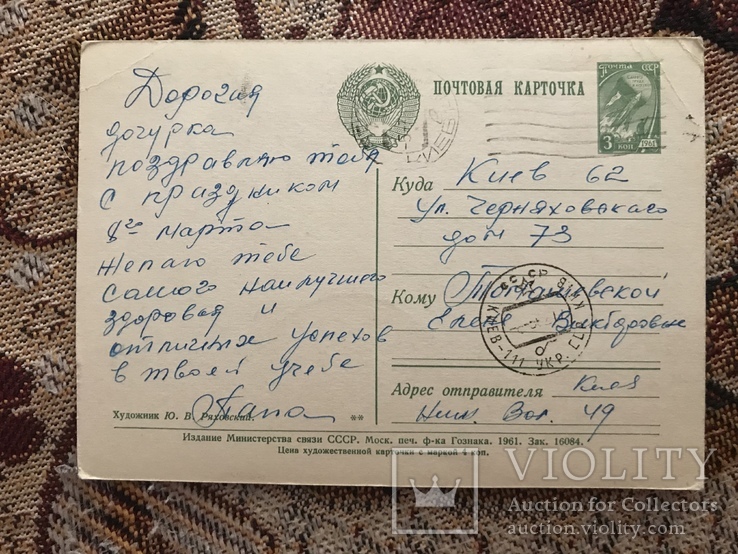 Дорогая
дочурка
поздравляю тебя
с праздником
8го марта
Желаю тебе
самого наилучшего
здоровья и
отличных успехов
в твоей учебе
Папа
Художник Ю. В. Ряховский.
**
ПОЧТОВАЯ КАРТОЧКА
ПОЧТА СССР
3 КОП
1961
КИЕВ
Куда Киев 62
ул. Черняховского
дом 73
Кому
Елене Викторовне
КИЕВ-111 УКР.
Адрес отправителя Киев
49
Издание Министерства связи СССР. Моск. печ. ф-ка Гознака. 1961. Зак. 16084.
Цена художественной карточки с маркой 4 коп.
VIOLITY
Auction for Collectors
auction.violity.com